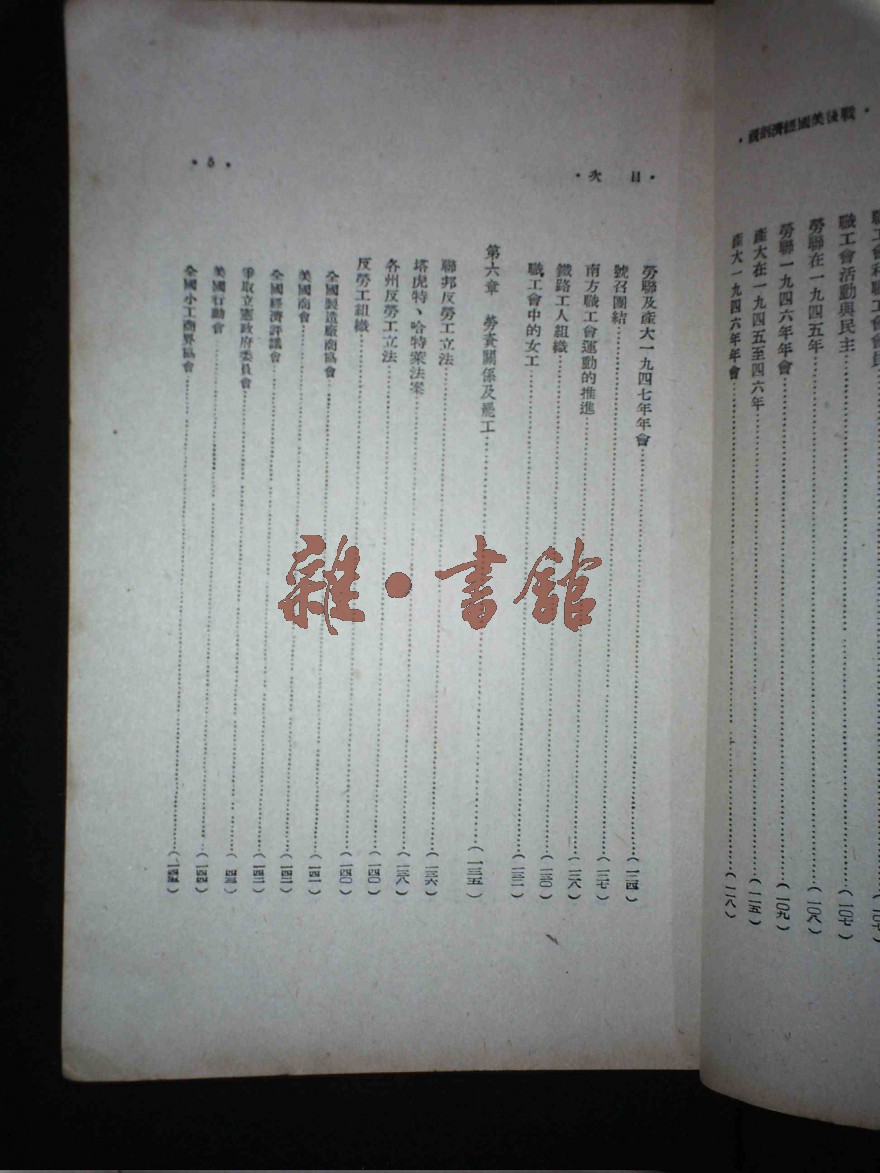 ·戰後美國經濟剖視·
職工會活動與民主……(一〇七)
勞聯在一九四五年……(一〇八)
勞聯一九四六年年會……(一〇九)
產大在一九四五至四六年……(一一五)
產大一九四六年年會……(一一八)
·目 次·
·5·
勞聯及產大一九四七年年會……(一二四)
號召團結……(一二七)
南方職工會運動的推進……(一二八)
鐵路工人組織……(一三〇)
職工會中的女工……(一三二)
第六章 勞資關係及罷工……(一三五)
聯邦反勞工立法……(一三六)
塔虎特、哈特萊法案……(一三八)
各州反勞工立法……(一四〇)
反勞工組織……(一四〇)
全國製造廠商協會……(一四一)
美國商會……(一四二)
全國經濟評議會……(一四二)
爭取立憲政府委員會……(一四三)
美國行動會……(一四四)
全國小工商界協會……(一四五)
雜·書館